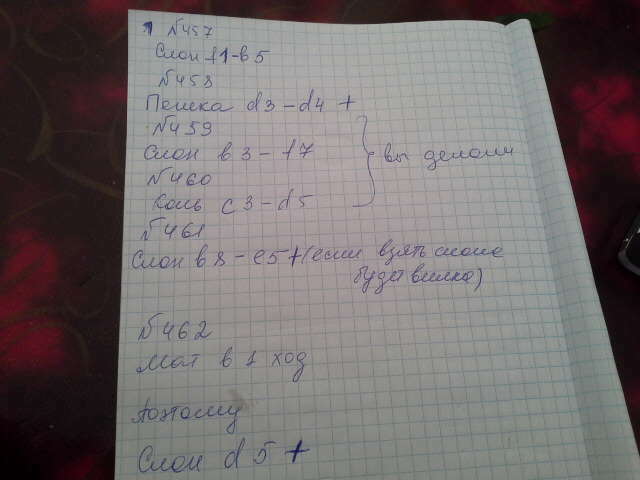 1 №457
Слон f1-в5
№458
Пешка d3-d4 +
№459
Слон в3-f7
№460
Конь с3-d5
вы делали
№461
Слон в8-е5+(если взять слона
будет вилка)
№462
Мат в 1 ход
Поэтому
Слон d5+